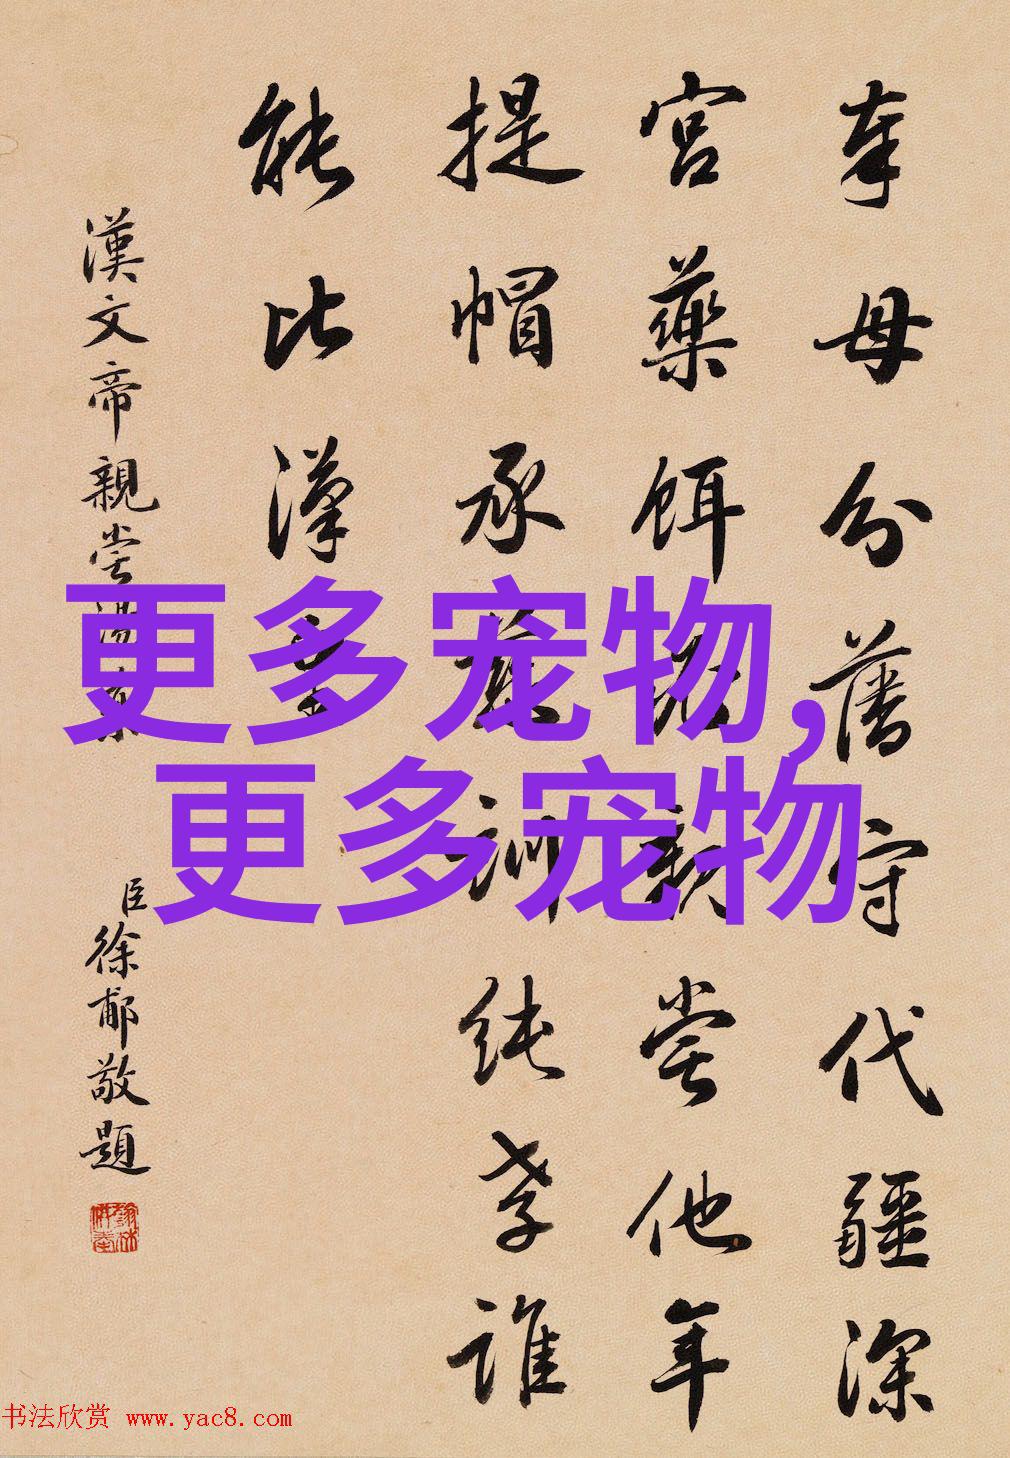 奉母分藩守代疆深
宮藥餌親嘗他年
提帽承慈訓純孝誰
能比漢
漢文帝親嘗湯藥
臣徐郙敬題
更多宠物，
更多宠物
书法欣赏 www.yac8.com